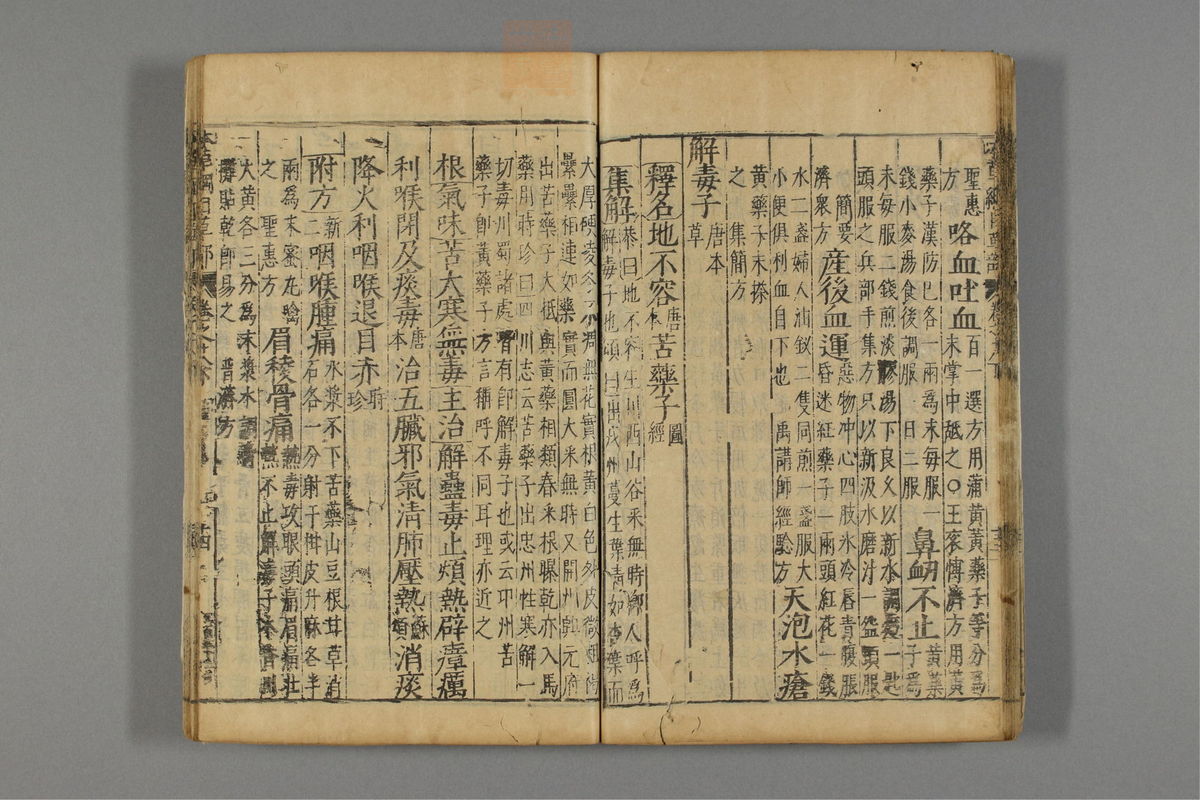 聖惠
方
咯血吐血
百一選方用蒲黃黃藥子等分爲
末掌中舐之○王袞博濟方用黃
藥子漢防巳各一兩爲末每服一
錢小麥湯食後調服一日二服
鼻衂不止
黃藥
子爲
末每服二錢煎淡膠湯下良久以新水調麪一匙
頭服之兵部手集方只以新汲水磨汁一盌頓服
簡要
濟衆方
產後血運
惡物冲心四肢氷冷唇青腹脹
昏迷紅藥子一兩頭紅花一錢
水二盞婦人油釵二隻同煎一盞服大
小便俱利血自下也 禹講師經驗方
天泡水瘡
黃藥子末搽
之 集簡方
解毒子
唐本
草
釋名
地不容
唐
本
苦藥子
圖
經
集解
恭曰地不容生川西山谷采無時鄉人呼爲
解毒子也頌曰出戎州蔓生葉青如杏葉而
大厚硬凌冬不凋無花實根黃白色外皮微麤褐
纍纍相連如藥實而圓大采無時又開州興元府
出苦藥子大抵與黃藥相類春采根曝乾亦入馬
藥用時珍曰四川志云苦藥子出忠州性寒解一
切毒川蜀諸處皆有卽解毒子也或云卭州苦
藥子卽黃藥子方言稱呼不同耳理亦近之
根
氣味
苦大寒無毒
主治
解蠱毒止煩熱辟瘴癘
利喉閉及痰毒
唐
本
治五臟邪氣清肺壓熱
蘇
頌
消痰
降火利咽喉退目赤
時
珍
附方
新
二
咽喉腫痛
水漿不下苦藥山豆根甘草消
石各一分射干柑皮升麻各半
兩爲末蜜丸噙
之 聖惠方
眉稜骨痛
熱毒攻眼頭痛眉痛壯
熱不止解毒子木香川
大黃各三分爲末漿水調
攤貼乾卽易之 普濟方